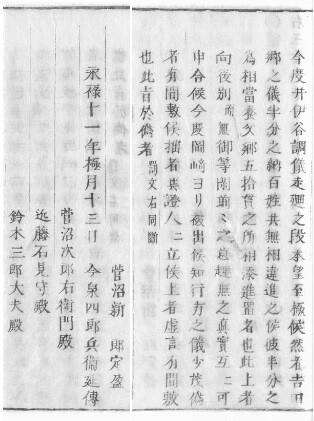 今度井伊谷調儀走廻之段本望至極候然者吉田
郷之儀半分之納百姓共無相違進之候彼半分之
為相当養父郷五拾貫之所相添進置者也此上者
向後別而無御等閑ニ之意趣無之真実互ニ可
申合候今度岡崎ヨリ被出候知行方之儀少茂偽
者有間敷候拙者其証人ニ立候上者虚言有間敷
也此旨於偽者 罰文右同断
菅沼新 郎定盈
永禄十一年極月十三日 今泉四郎兵衛延傳
菅沼次郎右衛門殿
近藤石見守殿
鈴木三郎大夫殿